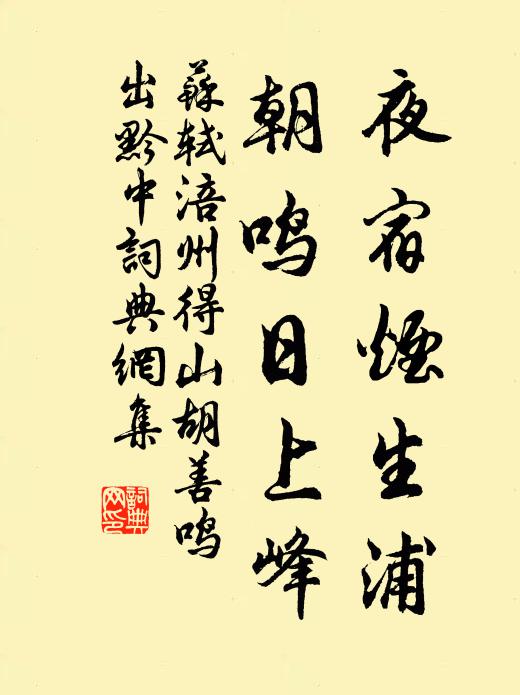 夜宿煙生浦
朝鸣日上峰
蘇軾涪州得山胡善鸣
出黔中詞典網集
詞典网印